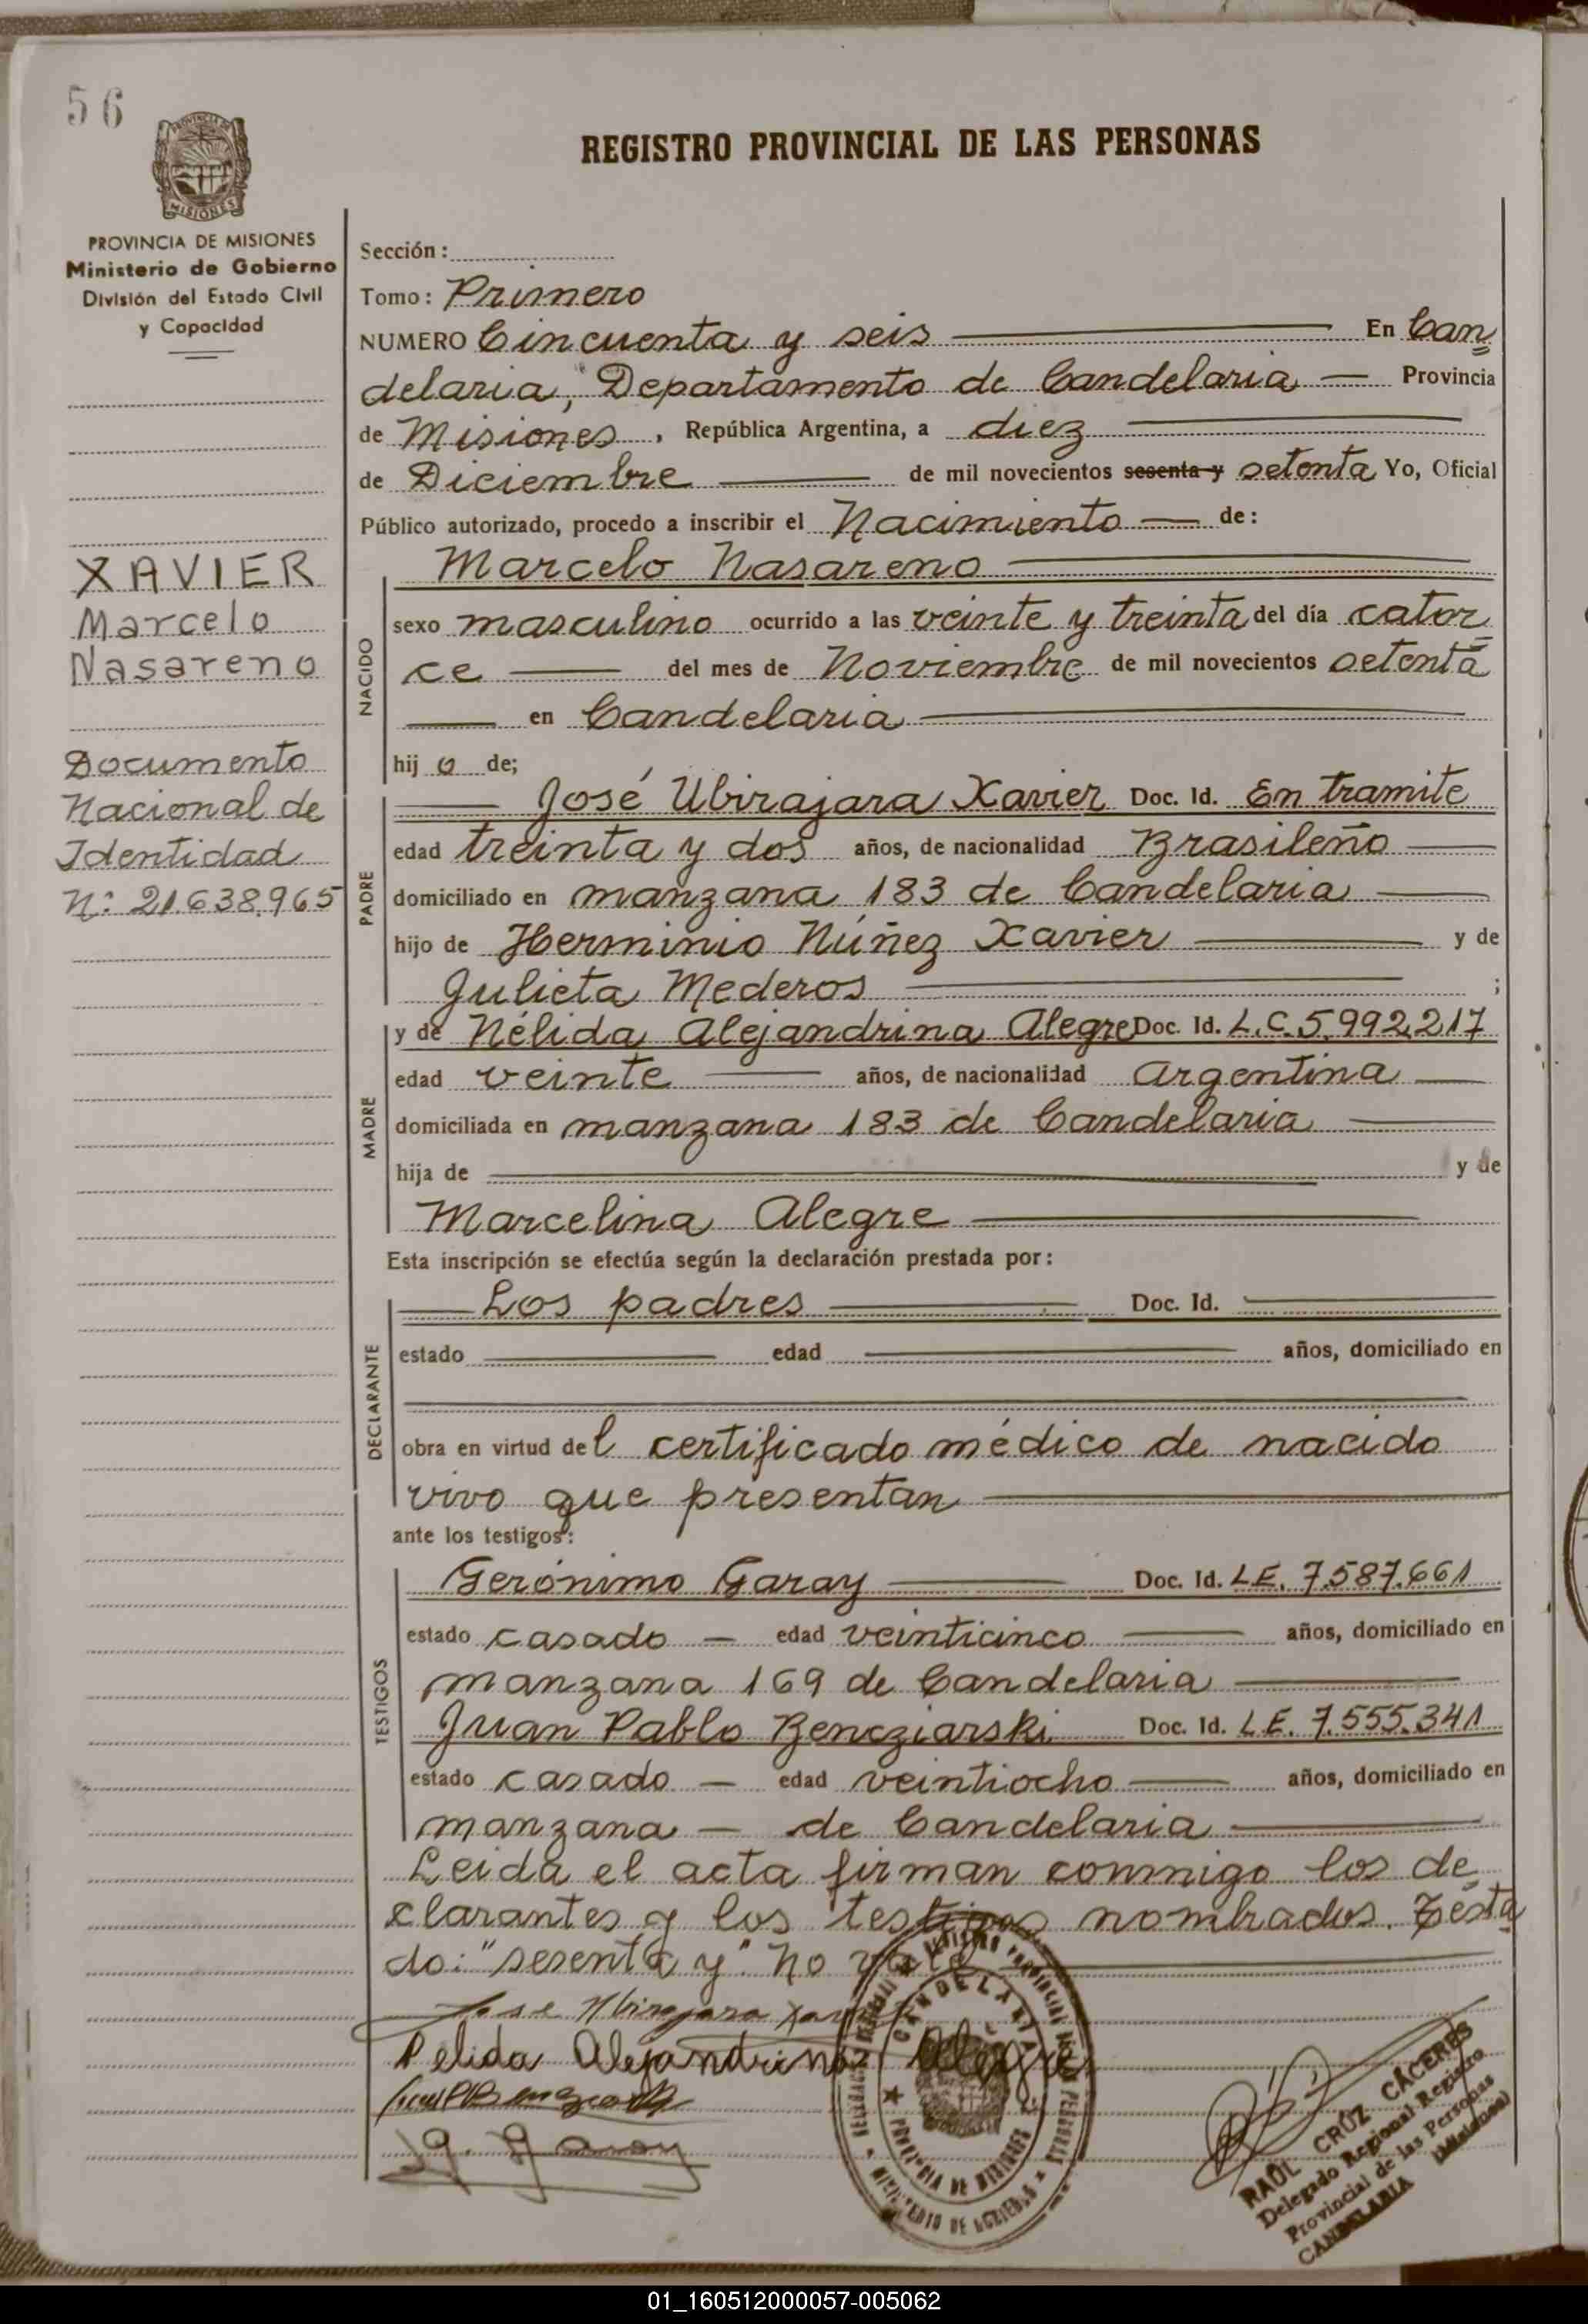 56
PROVINCIA DE
MISIONES
PROVINCIA DE MISIONES
Ministerio de Gobierno
División del Estado Civil
y Capacidad
XAVIER
Marcelo
Nasareno
Documento
Nacional de
Identidad
N: 21.638.965
REGISTRO PROVINCIAL DE LAS PERSONAS
Sección:
Tomo: Primero
NUMERO Cincuenta y seis En Can
delaria, Departamento de Candelaria Provincia
de Misiones, República Argentina, a diez
de Diciembre de mil novecientos sesenta y setenta Yo, Oficial
Público autorizado, procedo a inscribir el Nacimiento de:
NACIDO
Marcelo Nasareno
sexo masculino ocurrido a las veinte y treinta del día cator
ce del mes de Noviembre de mil novecientos setenta
en Candelaria
hijo de;
PADRE
José Ubirajara Xavier Doc. Id. En tramite
edad treinta y dos años, de nacionalidad Brasileño
domiciliado en manzana 183 de Candelaria
hijo de Herminio Núñez Xavier y de
Julieta Mederos ;
MADRE
y de Nélida Alejandrina Alegre Doc. Id. L.C. 5.992.217
edad veinte años, de nacionalidad Argentina
domiciliada en manzana 183 de Candelaria
hija de y de
Marcelina Alegre
Esta inscripción se efectúa según la declaración prestada por:
DECLARANTE
Los padres Doc. Id.
estado edad años, domiciliado en
obra en virtud del certificado médico de nacido
vivo que presentan
ante los testigos:
TESTIGOS
Gerónimo Garay Doc. Id. L.E. 7.587.661
estado casado edad veinticinco años, domiciliado en
manzana 169 de Candelaria
Juan Pablo Bencziarski Doc. Id. L.E. 7.555.341
estado casado edad veintiocho años, domiciliado en
manzana — de Candelaria
Leida el acta firman conmigo los de
clarantes y los testigos nombrados. Testa
do: "sesenta y" no vale
Jose Ubirajara Xavier
Nelida Alejandrina Alegre
G. Garay
CANDELARIA
PROVINCIA DE MISIONES
MINISTERIO DE GOBIERNO
RAÚL CRUZ CÁCERES
Delegado Regional Registro
Provincial de las Personas
CANDELARIA (Misiones)
01_160512000057-005062